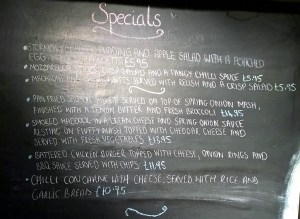 Specials
PUDDING AND APPLE SALAD WITH A POACHED
EGG £5.95
SALAD AND A TANGY CHILLI SAUCE £5.95
SERVED WITH RELISH AND A CRISP SALAD £5.95
PAN FRIED SERVED ON TOP OF SPRING ONION MASH,
FINISHED WITH A LEMON BUTTER AND FRESH BROCCOLI £14.95
SMOKED HADDOCK IN A CREAM CHEESE AND SPRING ONION SAUCE
RESTING ON FLUFFY MASH TOPPED WITH CHEDDAR CHEESE AND
SERVED WITH FRESH VEGETABLES £13.95
BATTERED CHICKEN BURGER TOPPED WITH CHEESE, ONION RINGS AND
BBQ SAUCE SERVED WITH CHIPS £11.95
CHILLI CON CARNE WITH CHEESE, SERVED WITH RICE AND
GARLIC BREAD £10.95